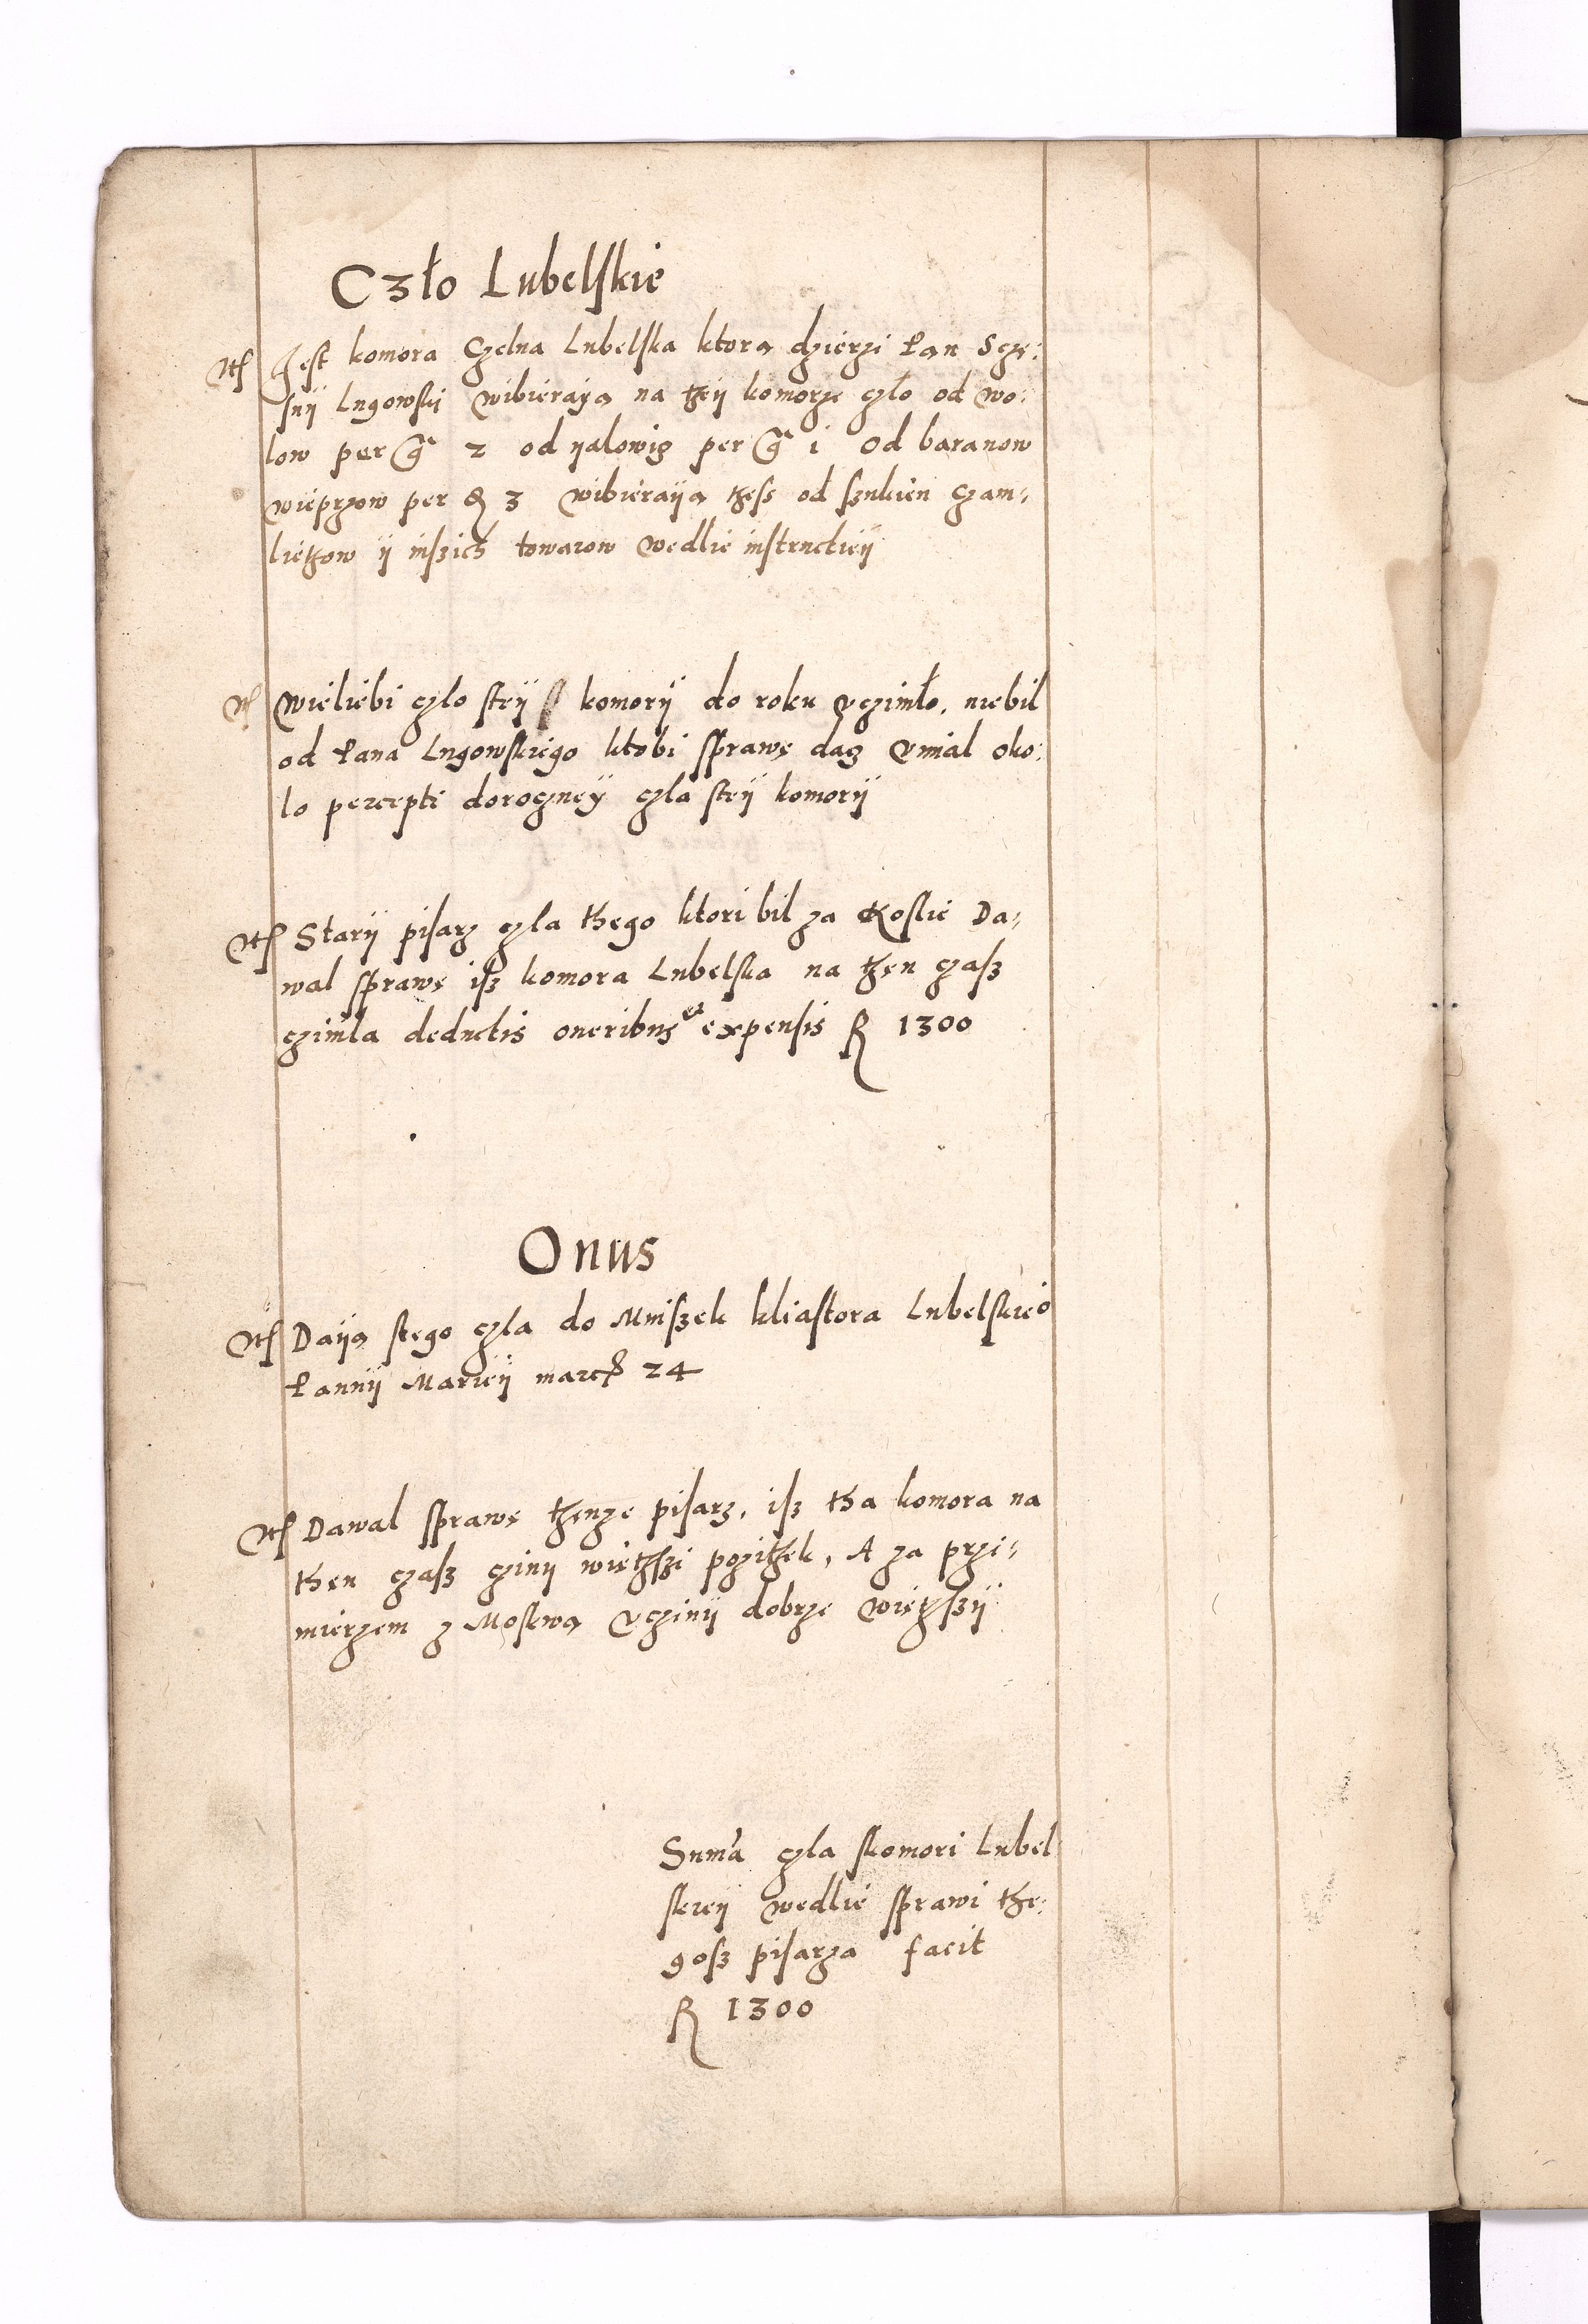 Czło Lubelskie
Itē Jest komora Czelna Lubelska ktorą dzierzi Pan Scze:
snÿ Lugowski wibierayą na theÿ komorze czło od wo:
low per gͬ 2 od yalowicz per gͬ 1 Od baranow
wieprzow per ₰ 3 wibieraÿą thess od sznkien czam-
liethow ÿ inszich towarow wedlie instructieÿ
Itē Wieliebi czlo steÿ komorÿ do roku vczinilo, niebil
od Pana Lugowskiego ktobi sprawę dacz vmial oko:
lo percepti doroczney czla steÿ komorÿ
Itē Starÿ pisarz czla thego ktori bil za Kostie Da-
wal sprawę isz komora Lubelska na then czasz
czinila deductis oneribus et expensis R 1300
Onus
Itē Daÿą stego czla do Mniszek kliastora Lubelskieo
Pannÿ Marieÿ marcħ 24
Itē Dawal sprawę thenze pisarz, isz tha komora na
then czasz czinÿ wiethszi pozithek, A za przi-
mierzem z Moskwą vczinÿ dobrze więthszÿ
Summa czla skomori Lubel
skieÿ wedlie sprawi the:
gosz pisarza facit
R 1300